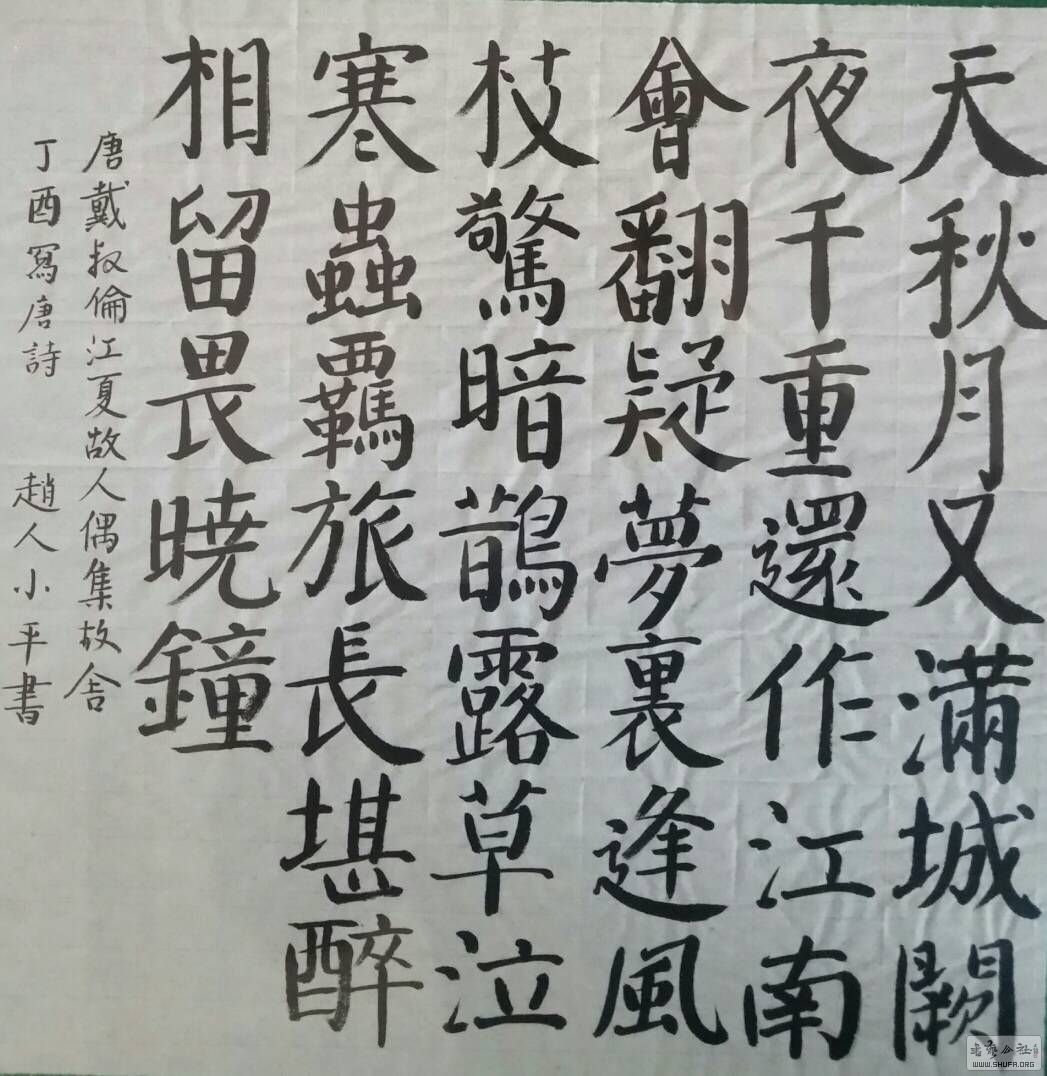 天秋月又滿城闕
夜千重還作江南
會翻疑夢裏逢風
枝驚暗鵲露草泣
寒蟲羈旅長堪醉
相留畏曉鐘
唐戴叔倫江夏故人偶集故舍
丁酉寫唐詩 趙人小平書
WWW.SHUFA.ORG